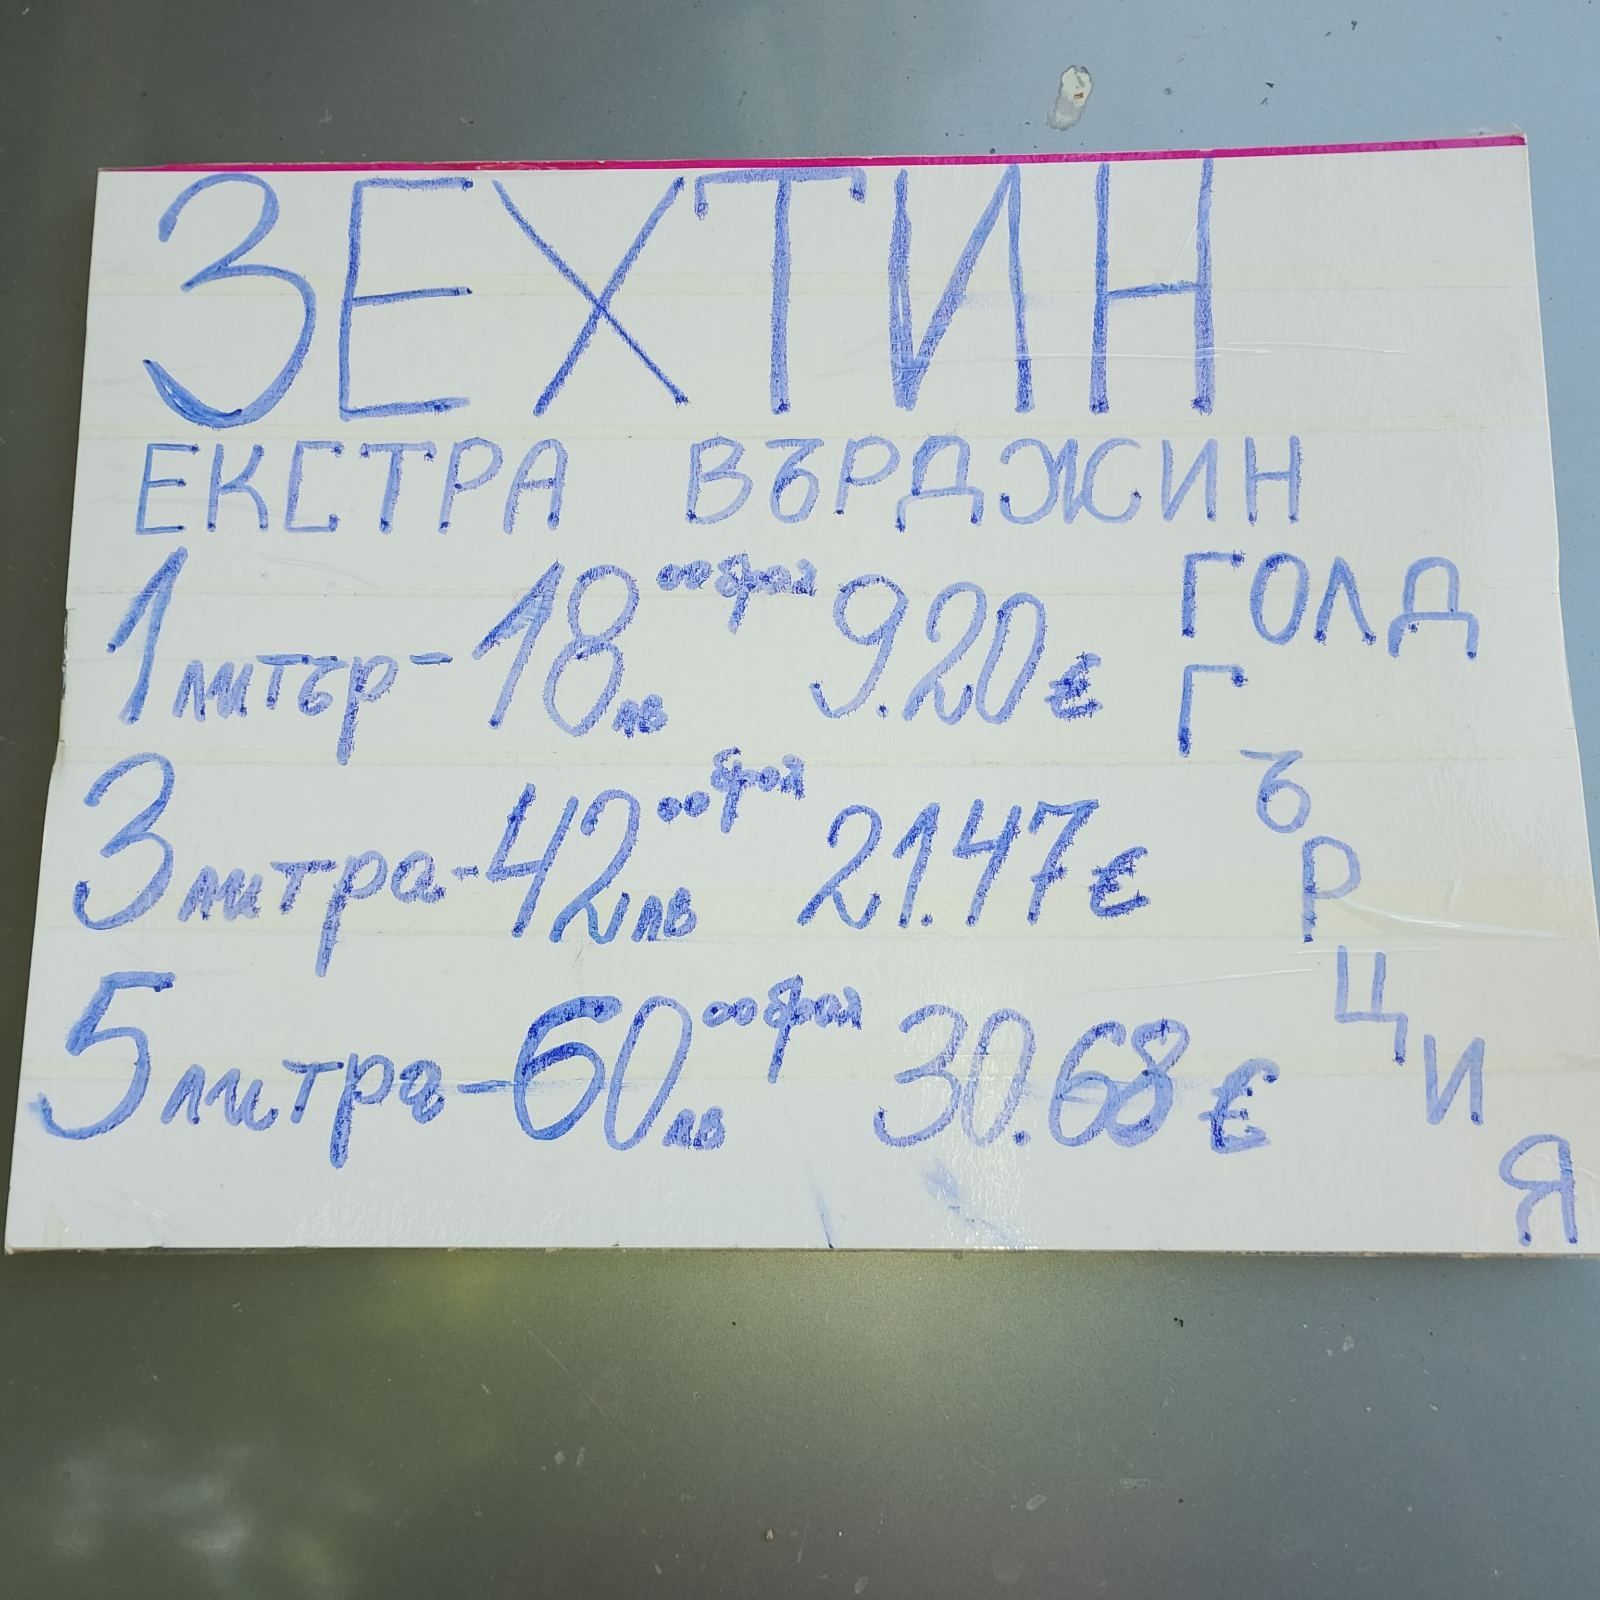 ЗЕХТИН
ЕКСТРА ВЪРДЖИН
1 литър - 18 00 лв брой 9.20 € ГОЛД
3 литра - 42 00 лв брой 21.47 €
5 литра - 60 00 лв брой 30.68 €
ГЪРЦИЯ